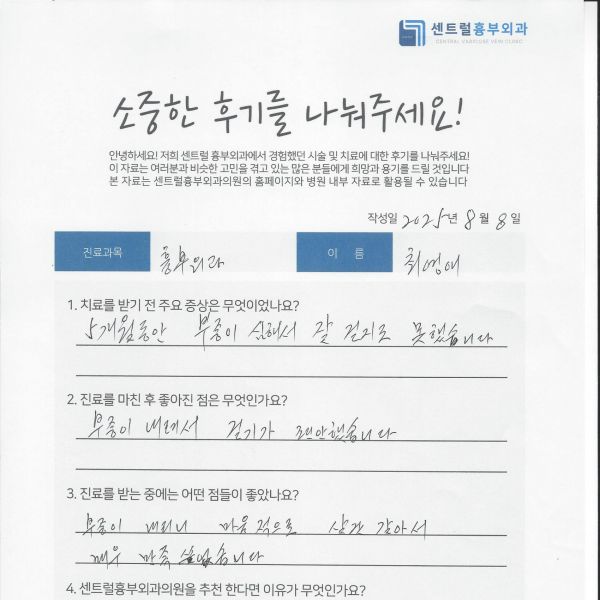 센트럴흉부외과
CENTRAL VARICOSE VEIN CLINIC
소중한 후기를 나눠주세요!
안녕하세요! 저희 센트럴 흉부외과에서 경험했던 시술 및 치료에 대한 후기를 나눠주세요!
이 자료는 여러분과 비슷한 고민을 겪고 있는 많은 분들에게 희망과 용기를 드릴 것입니다
본 자료는 센트럴흉부외과의원의 홈페이지와 병원 내부 자료로 활용될 수 있습니다
작성일 2025년 8월 8일
진료과목 흉부외과 이 름 최영애
1. 치료를 받기 전 주요 증상은 무엇이었나요?
5개월동안 부종이 심해서 잘 걷지도 못했습니다
2. 진료를 마친 후 좋아진 점은 무엇인가요?
부종이 내려서 걷기가 편안했습니다
3. 진료를 받는 중에는 어떤 점들이 좋았나요?
부종이 내리니 마음적으로 같아서
매우 만족 했습니다
4. 센트럴흉부외과의원을 추천 한다면 이유가 무엇인가요?